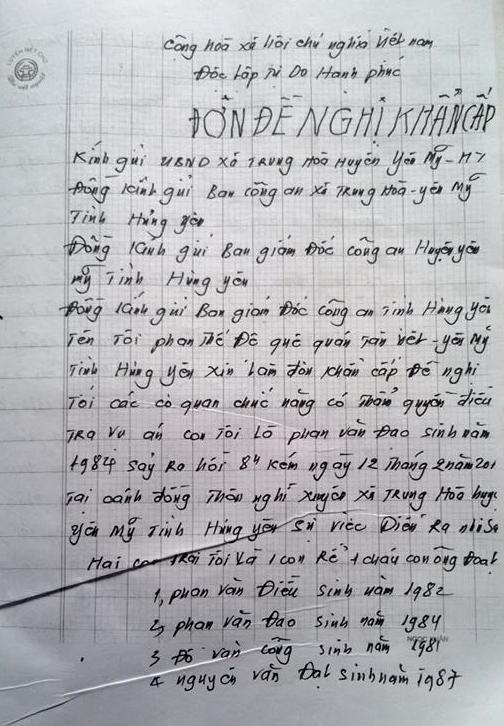 Cộng hoà xã hội chủ nghĩa Việt nam
Độc Lập Tự Do Hạnh phúc
ĐƠN ĐỀ NGHỊ KHẨN CẤP
Kính gửi UBND Xã TRUNG Hoà Huyện Yên Mỹ - HY
Đồng Kính gửi Ban công an xã Trung Hoà - yên Mỹ
Tỉnh Hưng yên
Đồng Kính gửi Ban giám Đốc công an Huyện yên
mỹ Tỉnh Hưng yên
Đồng Kính gửi Ban giám Đốc công an Tỉnh Hưng yên
Tên Tôi phan Thế Đê quê quán Tân Việt - yên Mỹ
Tỉnh Hưng yên xin Làm đơn khẩn cấp Đề nghi
Tới các cơ quan chức năng có Thẩm quyền điều
TRA Vụ án con Tôi Là phan văn Đao sinh năm
1984 sảy Ra hồi 8h kém ngày 12 Tháng 2 năm 201
Tại cánh đồng Thôn nghĩ xuyên xã Trung Hoà huyệ
Yên Mỹ Tỉnh Hưng yên sự việc Diễn Ra như sa
Hai con TRai Tôi Và 1 con Rể + cháu con ông Đoạt
1, phan văn Điều sinh năm 1982
2, phan văn Đao sinh năm 1984
3 Đỗ văn công sinh năm 1981
4 nguyễn văn Đạt sinh năm 1987